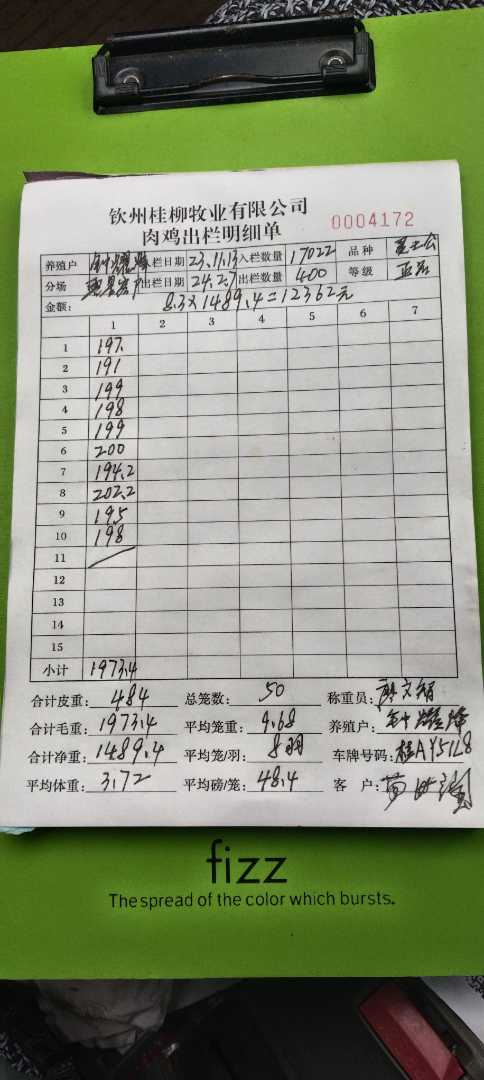 钦州桂柳牧业有限公司
肉鸡出栏明细单 0004172
养殖户 钟耀锋 入栏日期 23.11.13 入栏数量 17022 品种
分场 出栏日期 24.2.7 出栏数量 400 等级 正品
金额: 8.3×1489.4=12362元
1 2 3 4 5 6 7
1 197.
2 191
3 199
4 198
5 199
6 200
7 194.2
8 202.2
9 195
10 198
11
12
13
14
15
小计 1973.4
合计皮重: 484 总笼数: 50 称重员: 廖文
合计毛重: 1973.4 平均笼重: 9.68 养殖户: 钟耀锋
合计净重: 1489.4 平均笼/羽: 8羽 车牌号码: 桂AY5128
平均体重: 3.72 平均磅/笼: 48.4 客 户:
fizz
The spread of the color which bursts.